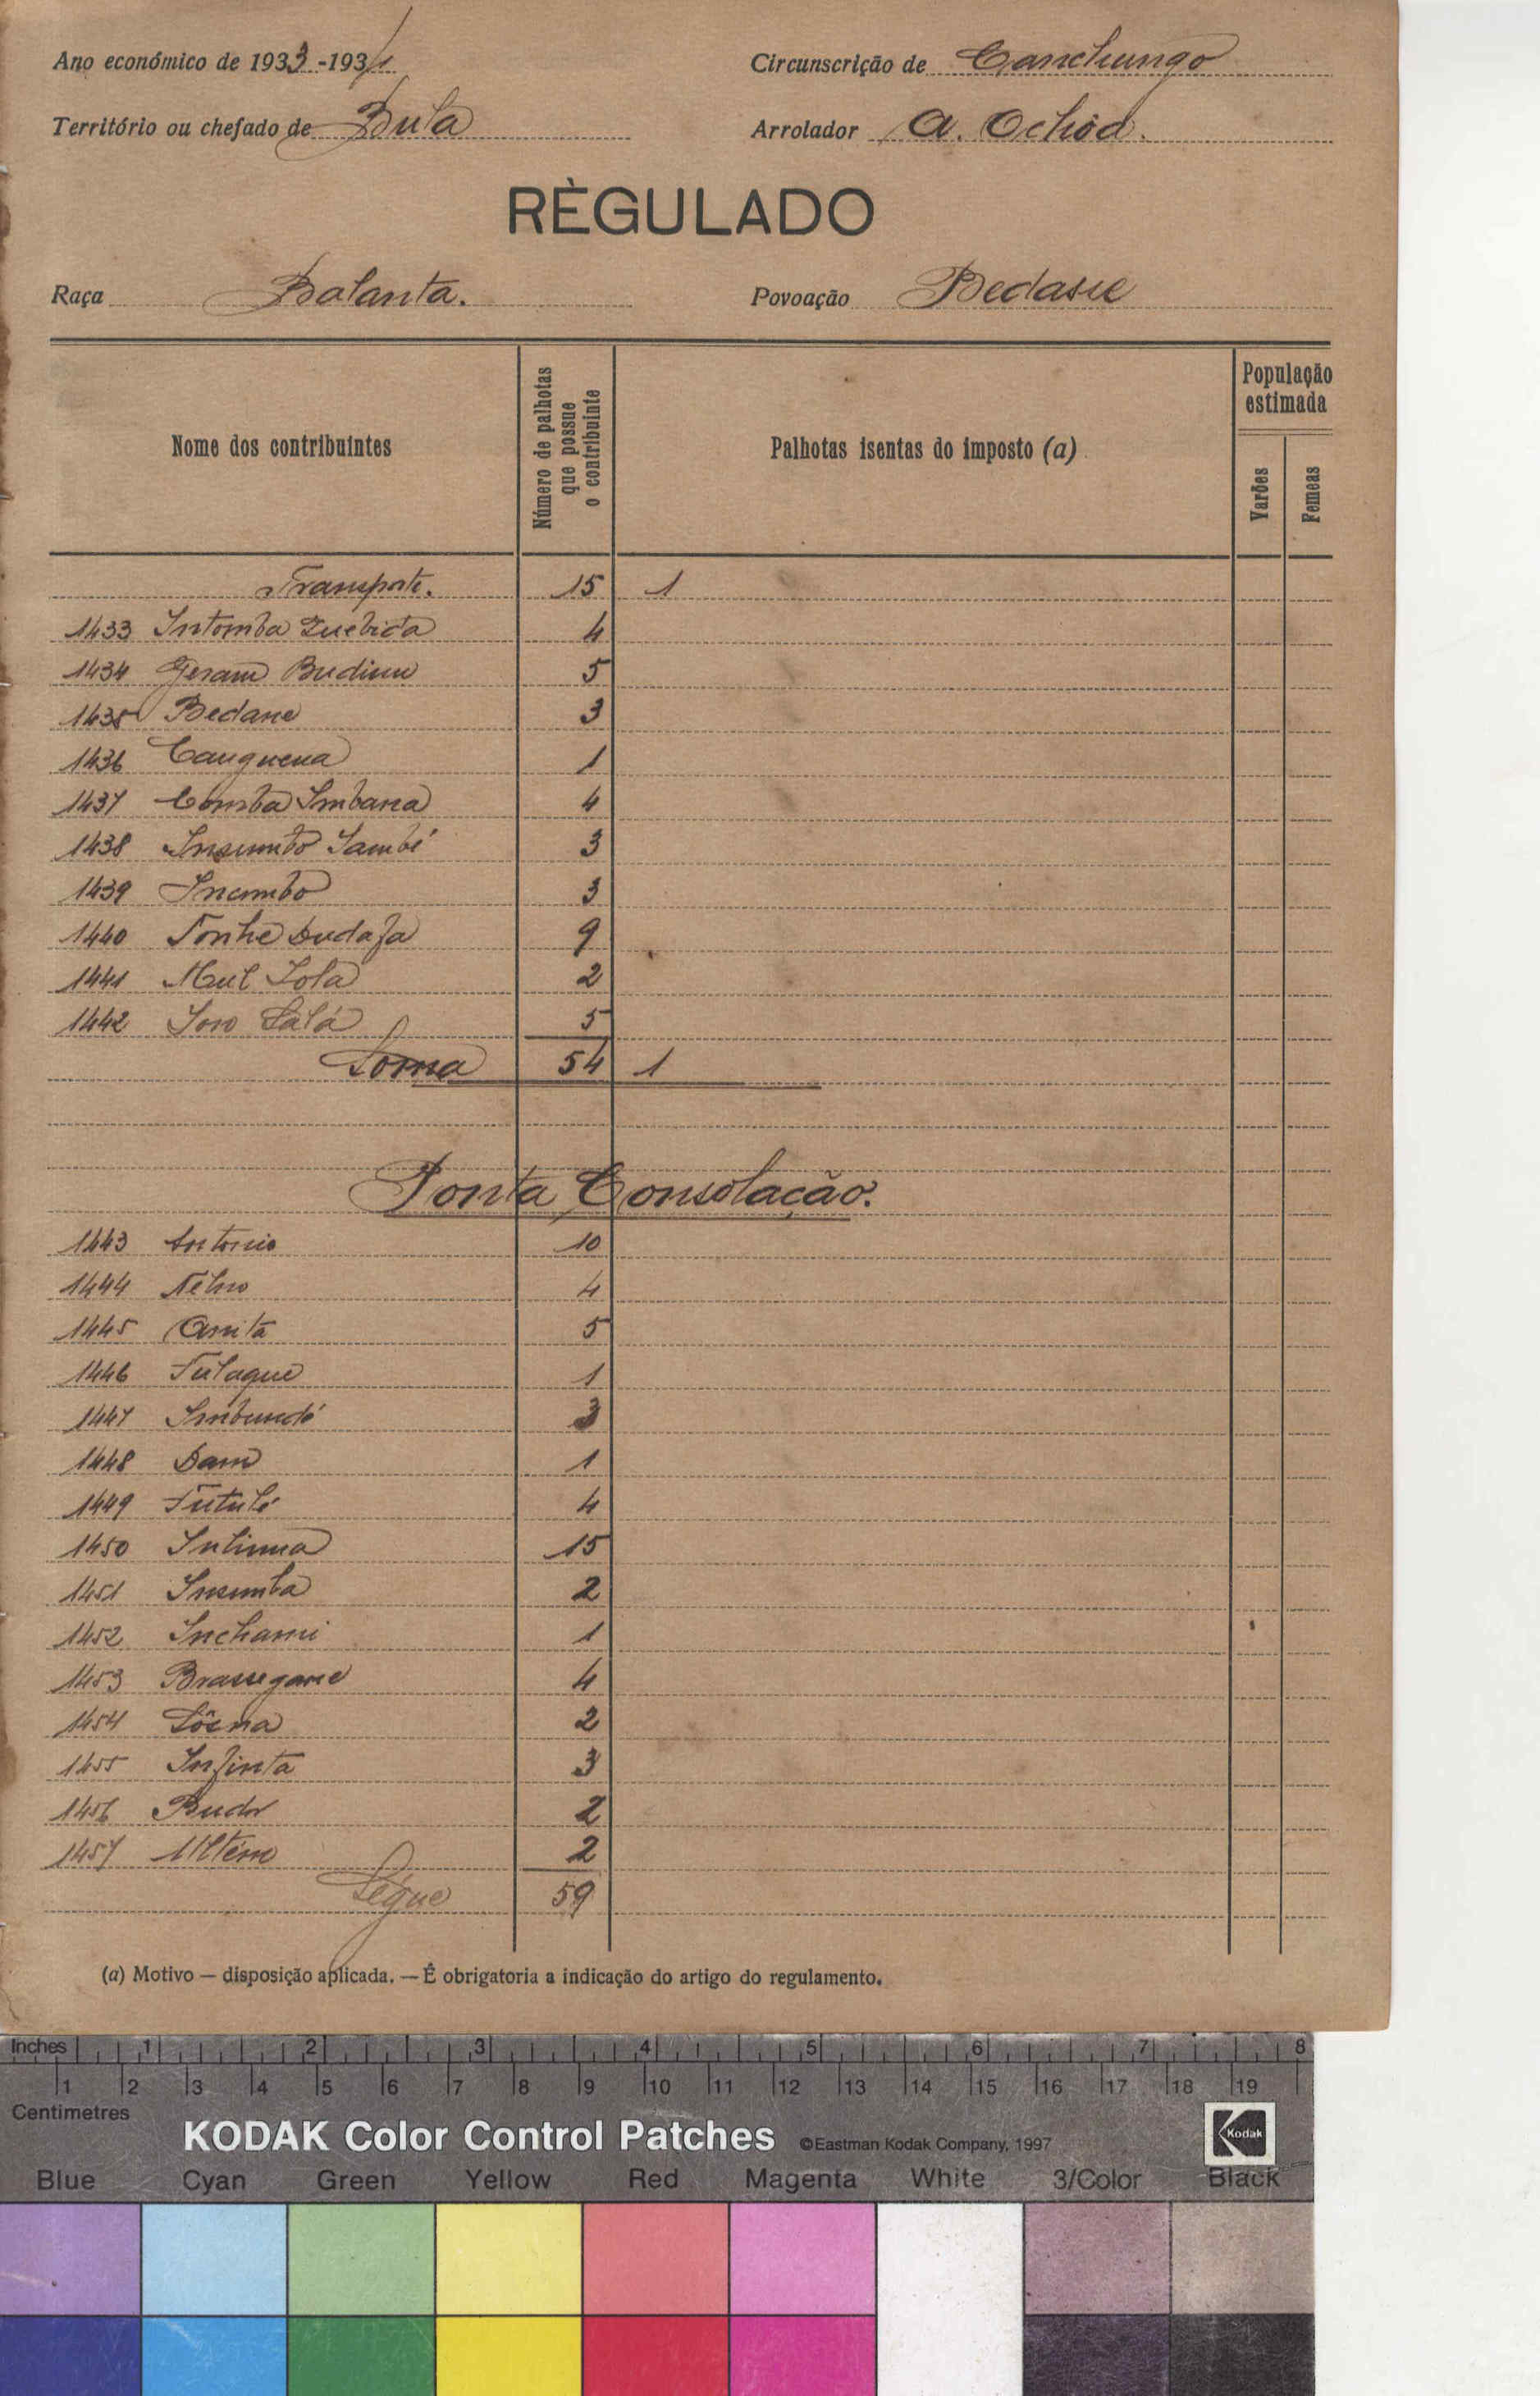 Ano económico de 1933-1934
Circunscrição de Canchungo
Território ou chefado de Bula
Arrolador A. Ochôa.
RÈGULADO
Raça Balanta.
Povoação Bedasse
Nome dos contribuintes
Número de palhotas que possue o contribuinte
Palhotas isentas do imposto (a)
População estimada
Varões
Femeas
Transporte. 15 1
1433 Intomba Quebida 4
1434 Geram Budium 5
1435 Bedane 3
1436 Canguena 1
1437 Comba Imbana 4
1438 Insumbo Sambé 3
1439 Incumbo 3
1440 Tonhe Dudafa 9
1441 Mul Lola 2
1442 Joro Lálá 5
Soma 54 1
Ponta Consolação.
1443 Antonio 10
1444 4
1445 Anita 5
1446 Fulaque 1
1447 Imbundé 3
1448 Dam 1
1449 Futulé 4
1450 15
1451 Insumba 2
1452 Inchami 1
1453 Brassegane 4
1454 2
1455 Infinta 3
1456 2
1457 2
Segue 59
(a) Motivo — disposição aplicada. — É obrigatoria a indicação do artigo do regulamento.
Inches 1 2 3 4 5 6 7 8
1 2 3 4 5 6 7 8 9 10 11 12 13 14 15 16 17 18 19
Centimetres
KODAK Color Control Patches ©Eastman Kodak Company, 1997 Kodak
Blue Cyan Green Yellow Red Magenta White 3/Color Black